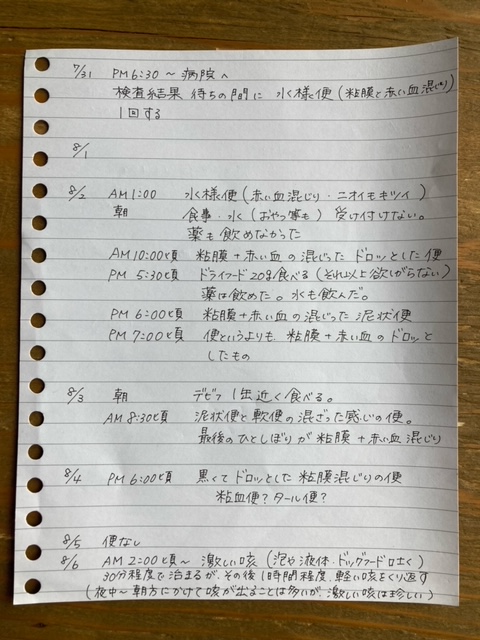 7/31 PM6:30〜 病院へ
検査結果 待ちの間に 水様便(粘膜と赤い血混じり)
1回する
8/1
8/2 AM1:00 水様便(赤い血混じり・ニオイもキツイ)
朝 食事・水(おやつ等も) 受け付けない。
薬も飲めなかった
AM10:00頃 粘膜+赤い血の混じった ドロッとした便
PM 5:30頃 ドライフード20g食べる(それ以上欲しがらない)
薬は飲めた。水も飲んだ。
PM 6:00頃 粘膜+赤い血の混じった 泥状便
PM 7:00頃 便というよりも 粘膜+赤い血のドロッと
したもの
8/3 朝 デビフ 1缶近く食べる。
AM8:30頃 泥状便と軟便の混ざった感じの便。
最後のひとしぼりが粘膜+赤い血混じり
8/4 PM6:00頃 黒くてドロッとした粘膜混じりの便
粘血便?タール便?
8/5 便なし
8/6 AM2:00頃〜 激しい咳(泡や液体・ドッグフード吐く)
30分程度で治まるが、その後1時間程度、軽い咳をくり返す
(夜中〜朝方にかけて咳が出ることは多いが、激しい咳は珍しい)